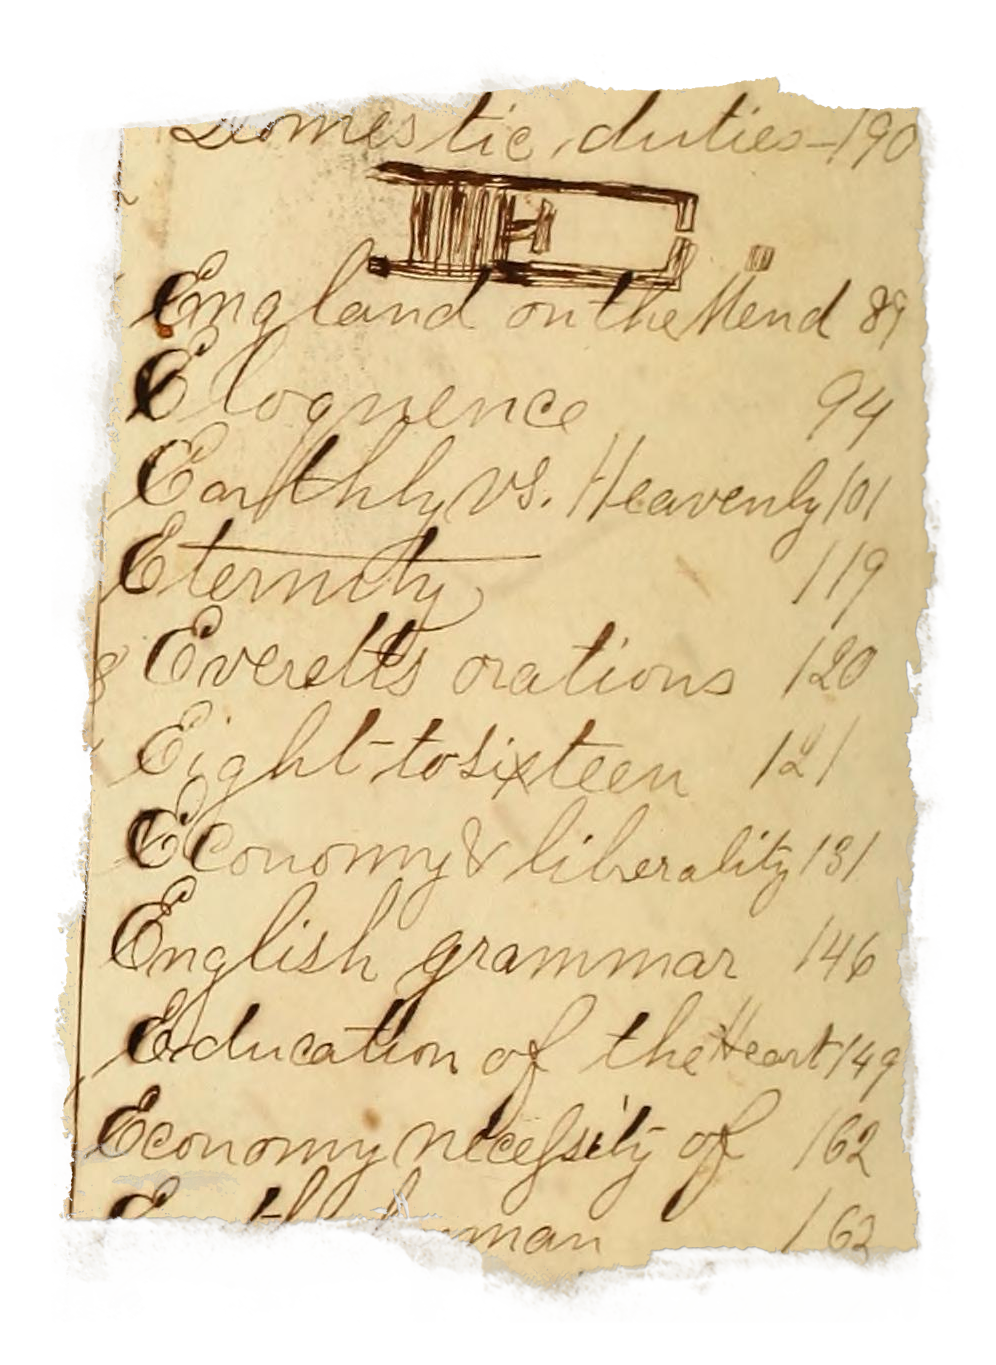 Domestic duties - 190
England on the Mend 89
Eloquence 94
Earthly vs. Heavenly 101
Eternity 119
Everetts orations 120
Eight-to sixteen 121
Economy & liberality 131
English grammar 146
Education of the Heart 149
Economy necessity of 162
162